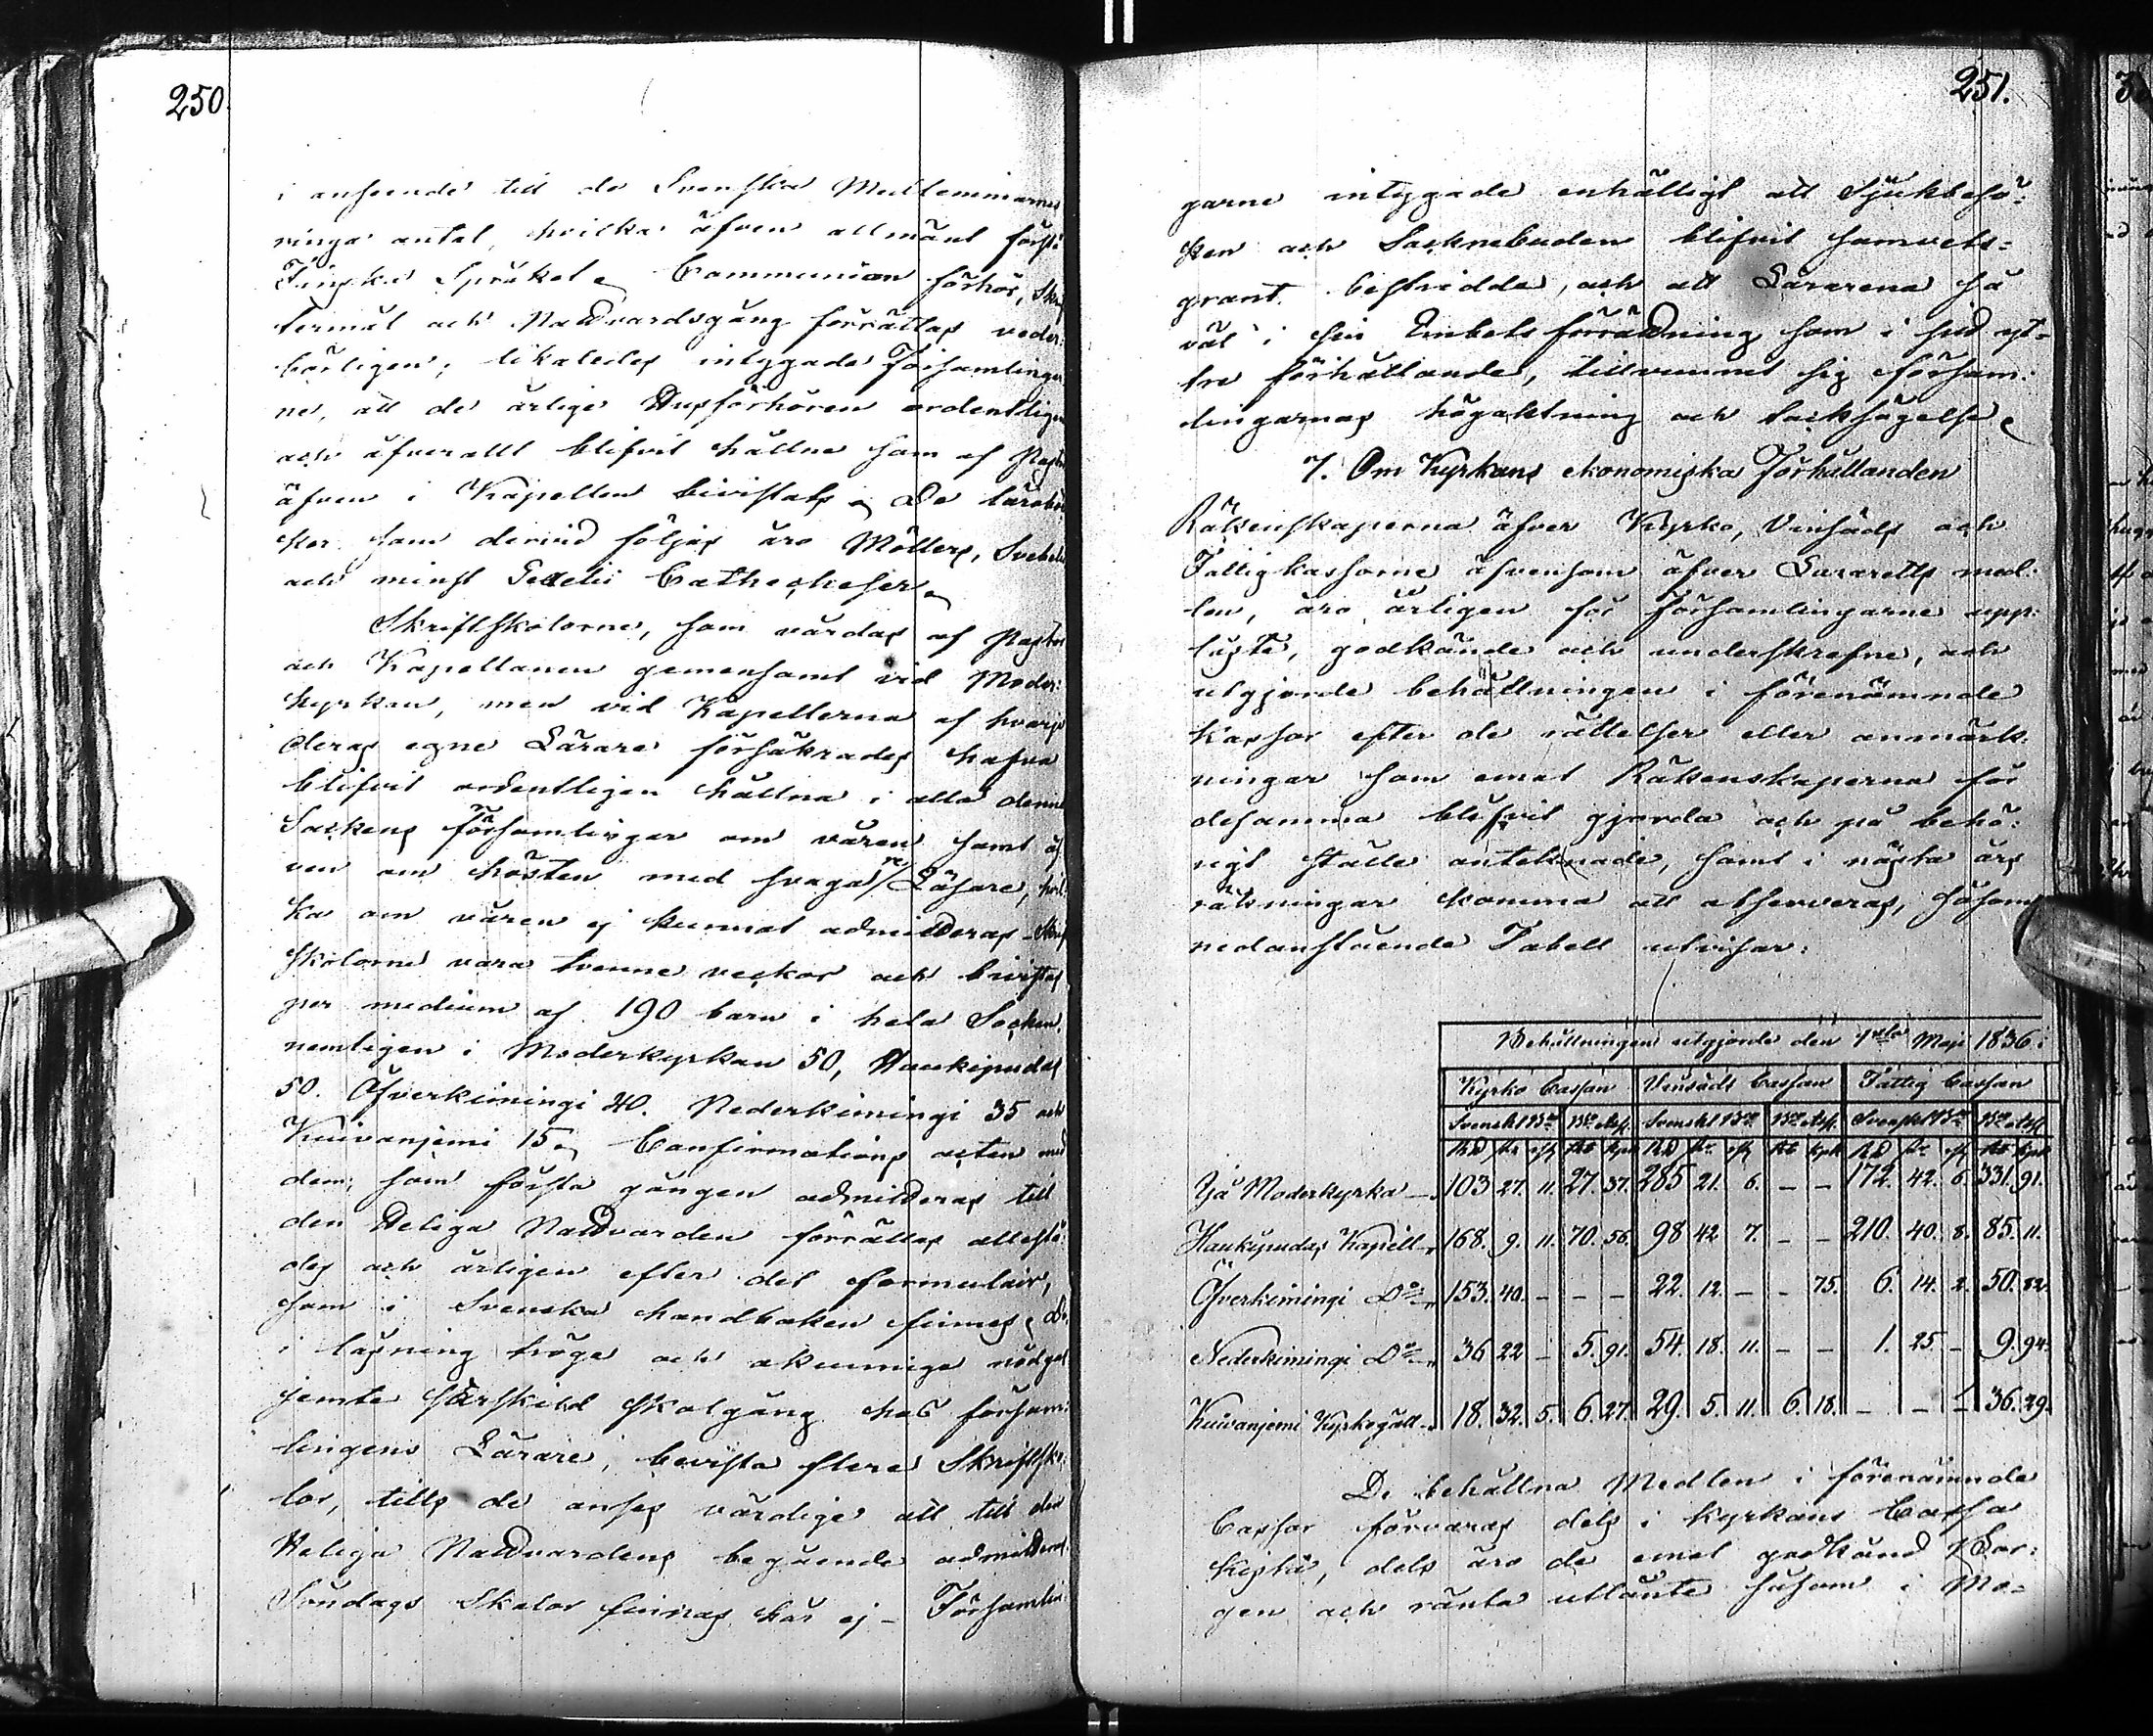 250.
i anseende till de Svenska Medlemmarnes
ringa antal, hvilka äfven allmänt förstå
Finska Språket. Communion förhör, Skrif
termål och Nattvardsgång förrättas veder-
börligen; likaledes intygade Församlingar
ne, att de årlige Husförhören ordentligen
och öfverallt blifvit hållne som af Pastor
äfven i Kapellen bivistats. De läroböc
ker som dervid följas äro Möllers, Svebelii
och minst Gezelii Cathecheser.
Skriftskolorne, som vårdas af Pastor
och Kapellanen gemensamt vid Moder-
kyrkan, men vid Kapellerna af hvarje
deras egne Lärare försäkrades hafva
blifvit ordentligen hållna i alla denna
Sockens församlingar om våren samt äf
ven om hösten med svagare Läsare, hvil-
ka om våren ej kunnat admitteras. Skrift
skolorne vara tvenne veckor och bivistas
per medium af 190 barn i hela Socken,
nemligen i Moderkyrkan 50, Haukipudas
50. Öfverkiiningi 40. Nederkiiningi 35 och
Kuivaniemi 15. Confirmations acten med
dem, som första gången admitteras till
den Heliga Nattvarden förrättas allestä-
des och årligen efter det formulair,
som i Svenska handboken finnes. De
i läsning tröga och okunniga nödgas
jemte särskild skolgång hos försam-
lingens Lärare, bevista flere Skriftsko-
lor, tills de anses värdige att till den
Heliga Nattvardens begående admitteras.
Söndags Skolor finnas här ej – Församlin-
251.
garne intygade enhälligt att Sjukbesö-
ken och Socknebuden blifvit samvets-
grant bestridde, och att Lärarena så
väl i sin Embetsförrättning som i sitt yt-
tre förhållande, tillvunnet sig försam-
lingarnas högaktning och tacksägelse.
7. Om Kyrkans ekonomiska Förhållanden
Räkenskaperna öfver Kyrko, Vinsäds och
Fattigkassorne äfvensom öfver Lazaretts med-
len, äro årligen för församlingarne upp-
läste, godkände och underskrefne, och
utgjorde behållningen i förenämnde
kassor efter de rättelser eller anmärk-
ningar som emot Räkenskaperna för
desamma blifvit gjorda och på behö-
rigt ställe antecknade, samt i nästa års
räkningar komma att observeras, såsom
nedanstående Tabell utvisar:
Behållningen utgjorde den 1sta Maji 1836 i
Kyrko Cassan Vinsäds Cassan Fattig Cassan
Svenskt Bco Bco Ass. Svenskt Bco Bco Ass. Svenskt Bco Bco Ass.
RD sk rst Rb kpk RD sk rst Rb kpk RD sk rst Rb kpk
Ijå Moderkyrka 103 27. 11. 27. 37. 285 21. 6. – – 172. 42. 6. 331. 91.
Haukipudas Kapell 168. 9. 11. 70. 56. 98 42 7. – – 210. 40. 8. 85. 11.
Öfverkiiningi Do 153. 40. – – – 22. 12. – – 75. 6. 14. 2. 50. 82.
Nederkiiningi Do 36 22 – 5. 91. 54. 18. 11. – – 1. 25. – 9. 94.
Kuivaniemi Kyrkogäll 18. 32. 5. 6. 27. 29. 5. 11. 6. 18. – – – 36. 29.
De behållna Medlen i förenämnde
Cassor förvaras dels i Kyrkans Cassa
Kista, dels äro de emot godkänd Bor-
gen och ränta utlånte såsom i Mo-